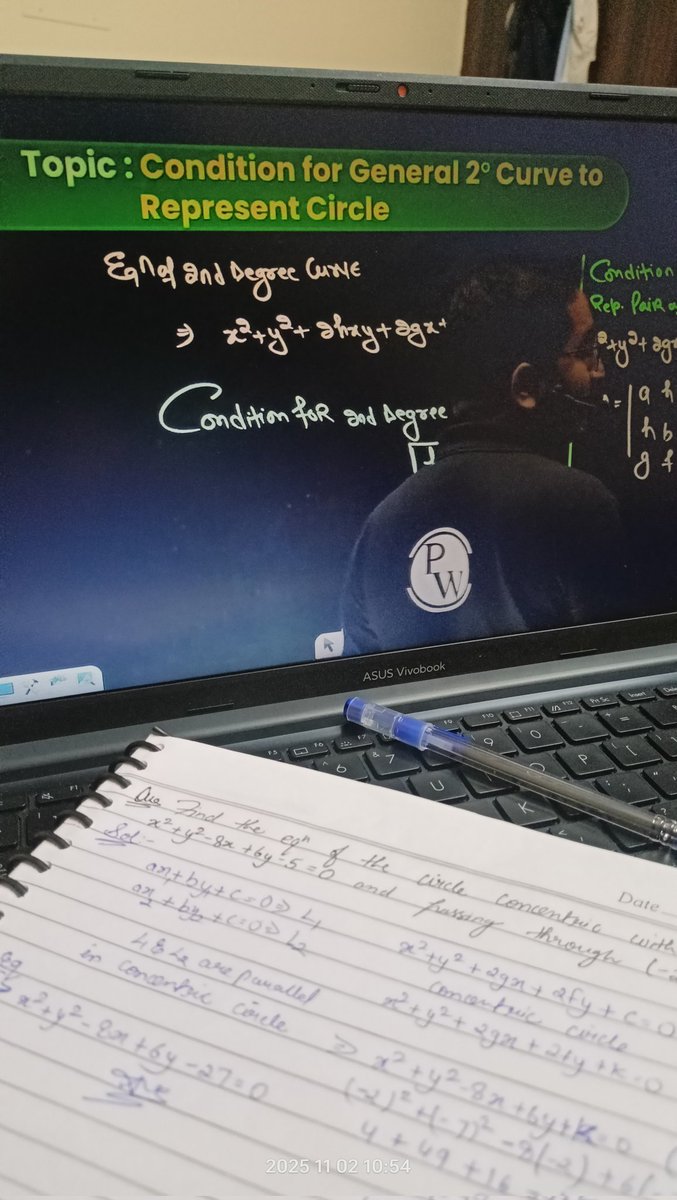 Topic : Condition for General 2° Curve to
Represent Circle
Eqn of 2nd Degree Curve
⇒ x²+y²+ 2hxy+2gx+
Condition for 2nd Degree
Condition
Rep. Pair
²+y²+ 2g
= | a h
h b
g f
PW
ASUS Vivobook
Que Find the eqn of the circle concentric with
x²+y²-8x+6y-5=0 and passing through (-2
Sol:-
ax+by+c=0 ⇒ L1
L1 & L2 are parallel
in concentric circle
x²+y²-8x+6y-27=0
Ans
Date
x²+y²+2gx+2fy+c=0
concentric circle
x²+y²+2gx+2fy+k=0
⇒ x²+y²-8x+6y+k=0
(-2)²+(-7)²-8(-2)+6(-
4+49+16
2025 11 02 10:54